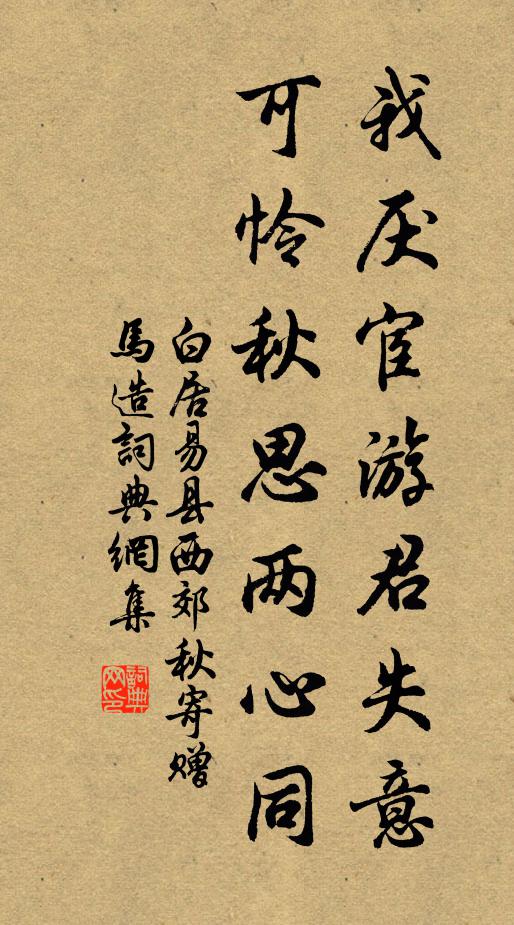 我厌宦游君失意
可怜秋思两心同
白居易县西郊秋寄赠
馬造詞典網集
詞典
网印